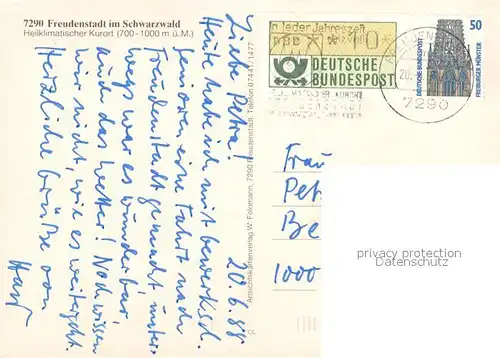 7290 Freudenstadt im Schwarzwald
Heilklimatischer Kurort (700-1000 m ü.M.)
20.6.88
Liebe Petra!
Heute habe ich mit
senioren eine Fahrt nach
Freudenstadt gemacht, unter-
wegs war es wunderbar
auch das Wetter! Noch wissen
wir nicht, wie es weitergeht.
Herzliche Grüße von
Ansichtskartenverlag W. Feldmann, 7290 Freudenstadt, Telefon 07441/1477
in jeder Jahreszeit
DEUTSCHE
BUNDESPOST
7290
50
DEUTSCHE BUNDESPOST
FREIBURGER MÜNSTER
Frau
Pet
Be
1000
privacy protection
Datenschutz